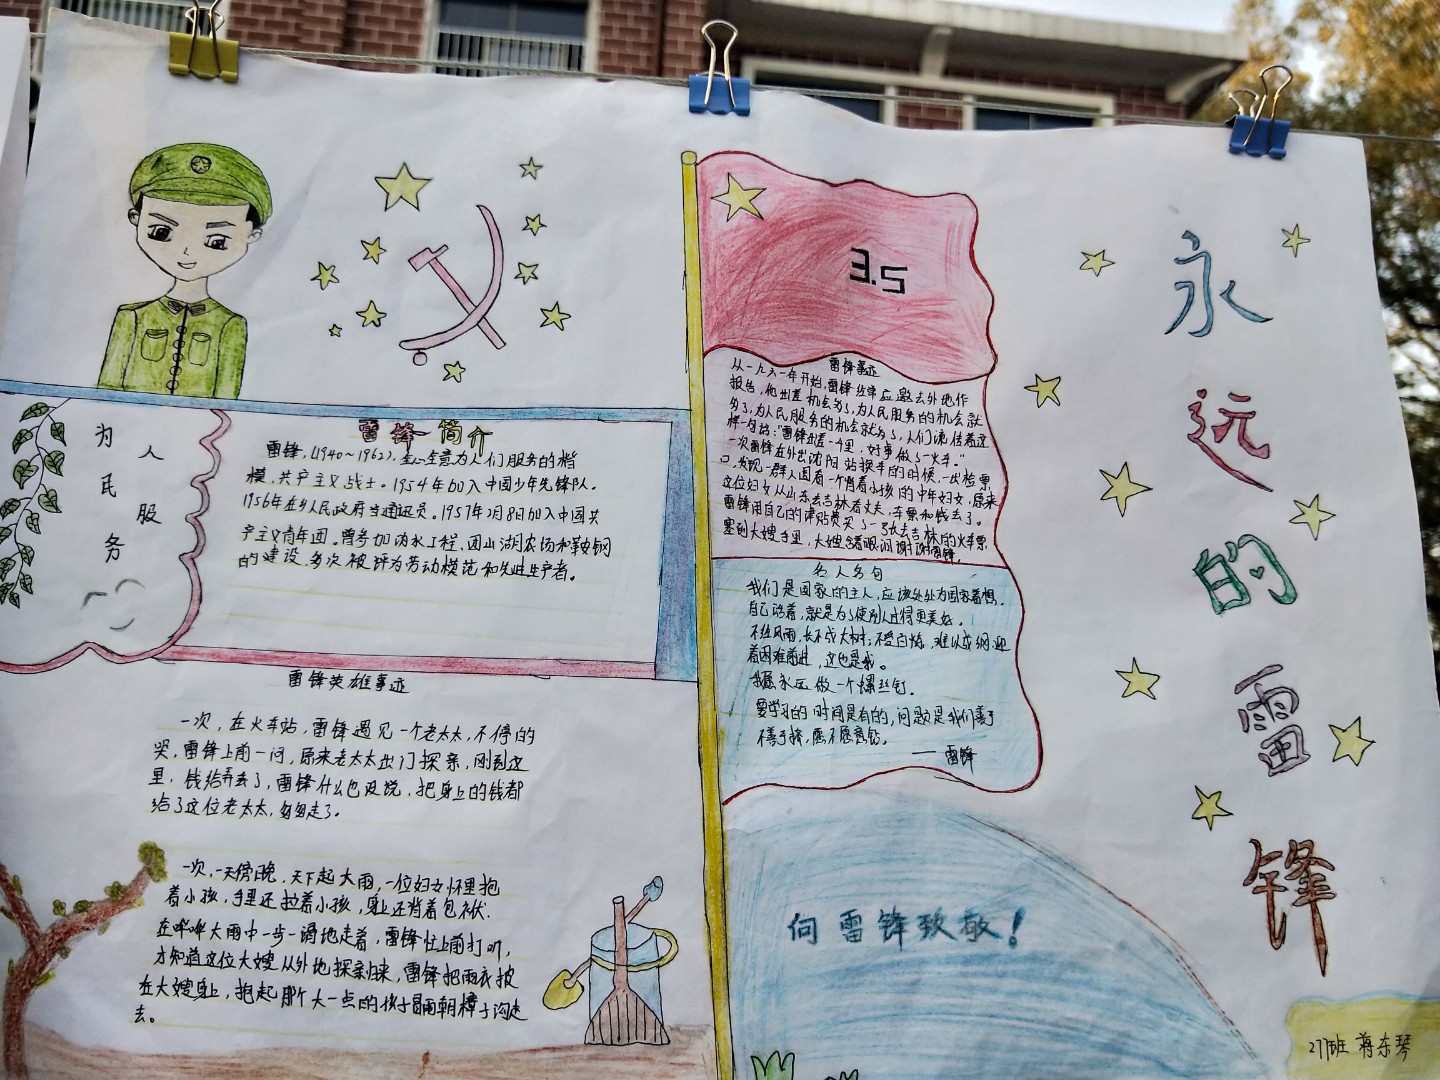 为人民服务
雷锋简介
雷锋,(1940~1962),全心全意为人们服务的楷
模,共产主义战士。1954年加入中国少年先锋队。
1956年在乡人民政府当通迅员。1957年2月8日加入中国共
产主义青年团。曾参加沩水工程、团山湖农场和鞍钢
的建设,多次被评为劳动模范和先进生产者。
雷锋英雄事迹
一次,在火车站,雷锋遇见一个老太太,不停的
哭,雷锋上前一问,原来老太太出门探亲,刚到这
里,钱给弄丢了,雷锋什么也没说,把身上的钱都
给了这位老太太,匆匆走了。
一次,一天傍晚,天下起大雨,一位妇女怀里抱
着小孩,手里还拉着小孩,身上还背着包袱.
在哗哗大雨中一步一滑地走着,雷锋忙上前打听,
才知道这位大嫂从外地探亲归来,雷锋把雨衣披
在大嫂身上,抱起那个大一点的孩子冒雨朝樟子沟走
去。
3.5
雷锋事迹
从一九六一年开始,雷锋经常应邀去外地作
报告,他出差机会多了,为人民服务的机会就
多了,为人民服务的机会就多了,人们流传着这
样一句话:"雷锋出差一千里,好事做了一火车。"
一次雷锋在外出沈阳站换车的时候,一出检票
口,发现一群人围着一个背着小孩的中年妇女,原来
这位妇女从山东去吉林看丈夫,车票和钱丢了。
雷锋用自己的津贴费买了一张去吉林的火车票
塞到大嫂手里,大嫂含着眼泪谢谢雷锋。
名人名句
我们是国家的主人,应该处处为国家着想。
自己活着,就是为了使别人过得更美好。
不经风雨,长不成大树;不受百炼,难以成钢,迎
着困难前进,这也是我。
我愿永远做一个螺丝钉。
要学习的时间是有的,问题是我们善于
不善于挤,愿不愿意钻。
——雷锋
向雷锋致敬!
永远的雷锋
277班 蒋东琴